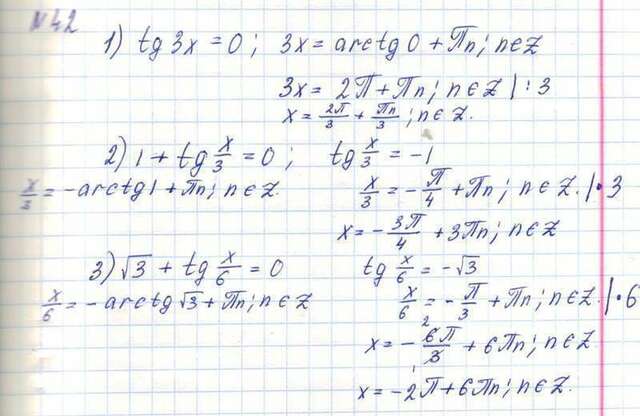 №42
1) tg 3x = 0; 3x = arctg 0 + Πn; n∈Z
3x = 2Π + Πn; n∈Z | : 3
x = 2Π/3 + Πn/3; n∈Z.
2) 1 + tg x/3 = 0; tg x/3 = -1
x/3 = -arctg 1 + Πn; n∈Z. x/3 = -Π/4 + Πn; n∈Z. | · 3
x = -3Π/4 + 3Πn; n∈Z
3) √3 + tg x/6 = 0 tg x/6 = -√3
x/6 = -arctg √3 + Πn; n∈Z x/6 = -Π/3 + Πn; n∈Z. | · 6
x = -6Π/3 + 6Πn; n∈Z.
x = -2Π + 6Πn; n∈Z.